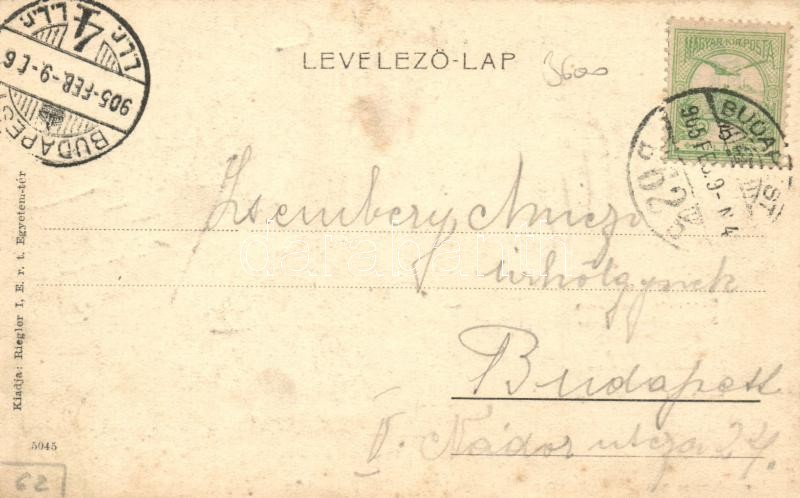 LEVELEZŐ-LAP
3600
MAGYAR KIR. POSTA
BUDAPEST
905-FEB-9-
4
BUDAPEST
905 FEB. 9-N 4
62
Zsembery
úrhölgynek
Budapest
V. Nádor utcza 24.
Kiadja: Riegler J. E. r. t. Egyetem-tér
5045
62